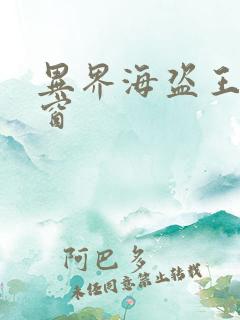 異界海盗王
窗
阿巴多
未经同意禁止转载